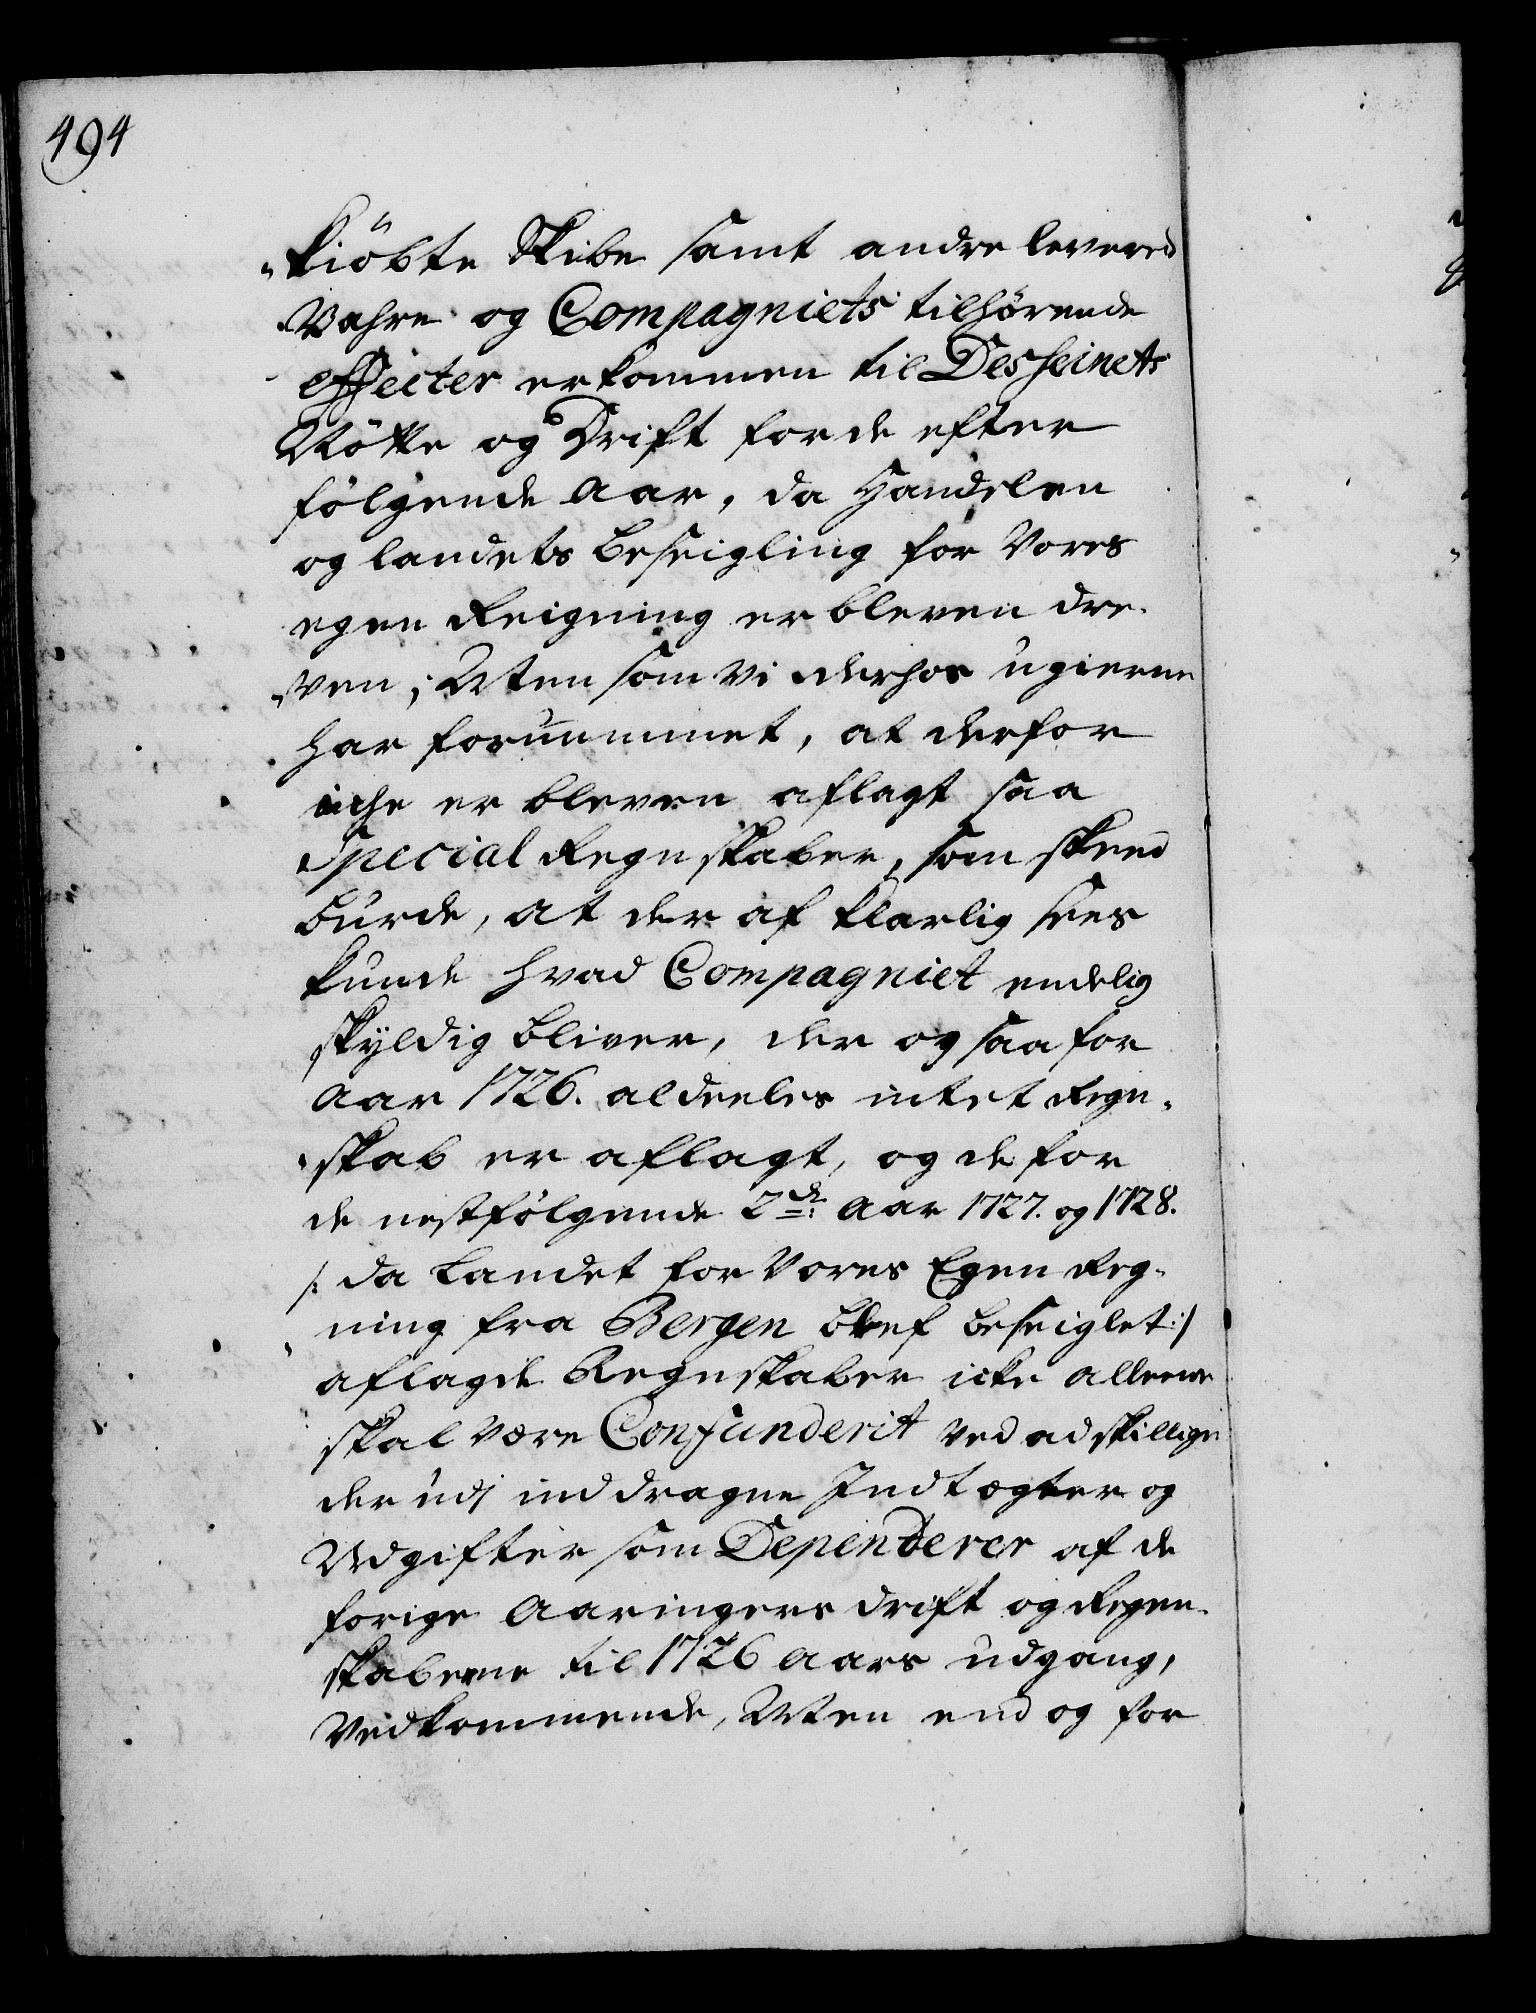 494
"kiöbte Skibe samt andre levered
Vahre og Compagniets tilhörende
effecter erkommen til Desseinets
Nötte og Drift for de efter
fölgende Aar, da Handelen
og landets beseigling for Vores
egen Reigning er bleven dre-
"ven; Men som Vi derhos ugierne
har fornummet, at derfor
iche er bleven aflagt saa
Special Regnskaber, som skeed
burde, at der af klarlig sees
kunde hvad Compagniet endelig
skyldig bliver, der og saa for
Aar 1726. aldeeles intet Regn-
"skab er aflagt, og de for
de nestfölgende 2de: Aar 1727. og 1728.
/: da Landet for Vores Egen Reg-
"ning fra Bergen blef beseiglet:/
aflagde Regnskaber icke alleene
skal være Confunderit ved adskillige
der udj inddragne Indtægter og
Udgifter som Dependerer af de
forige Aaringers drift og Regen-
skaberne til 1726 Aars udgang,
Vedkommende, Men end og for